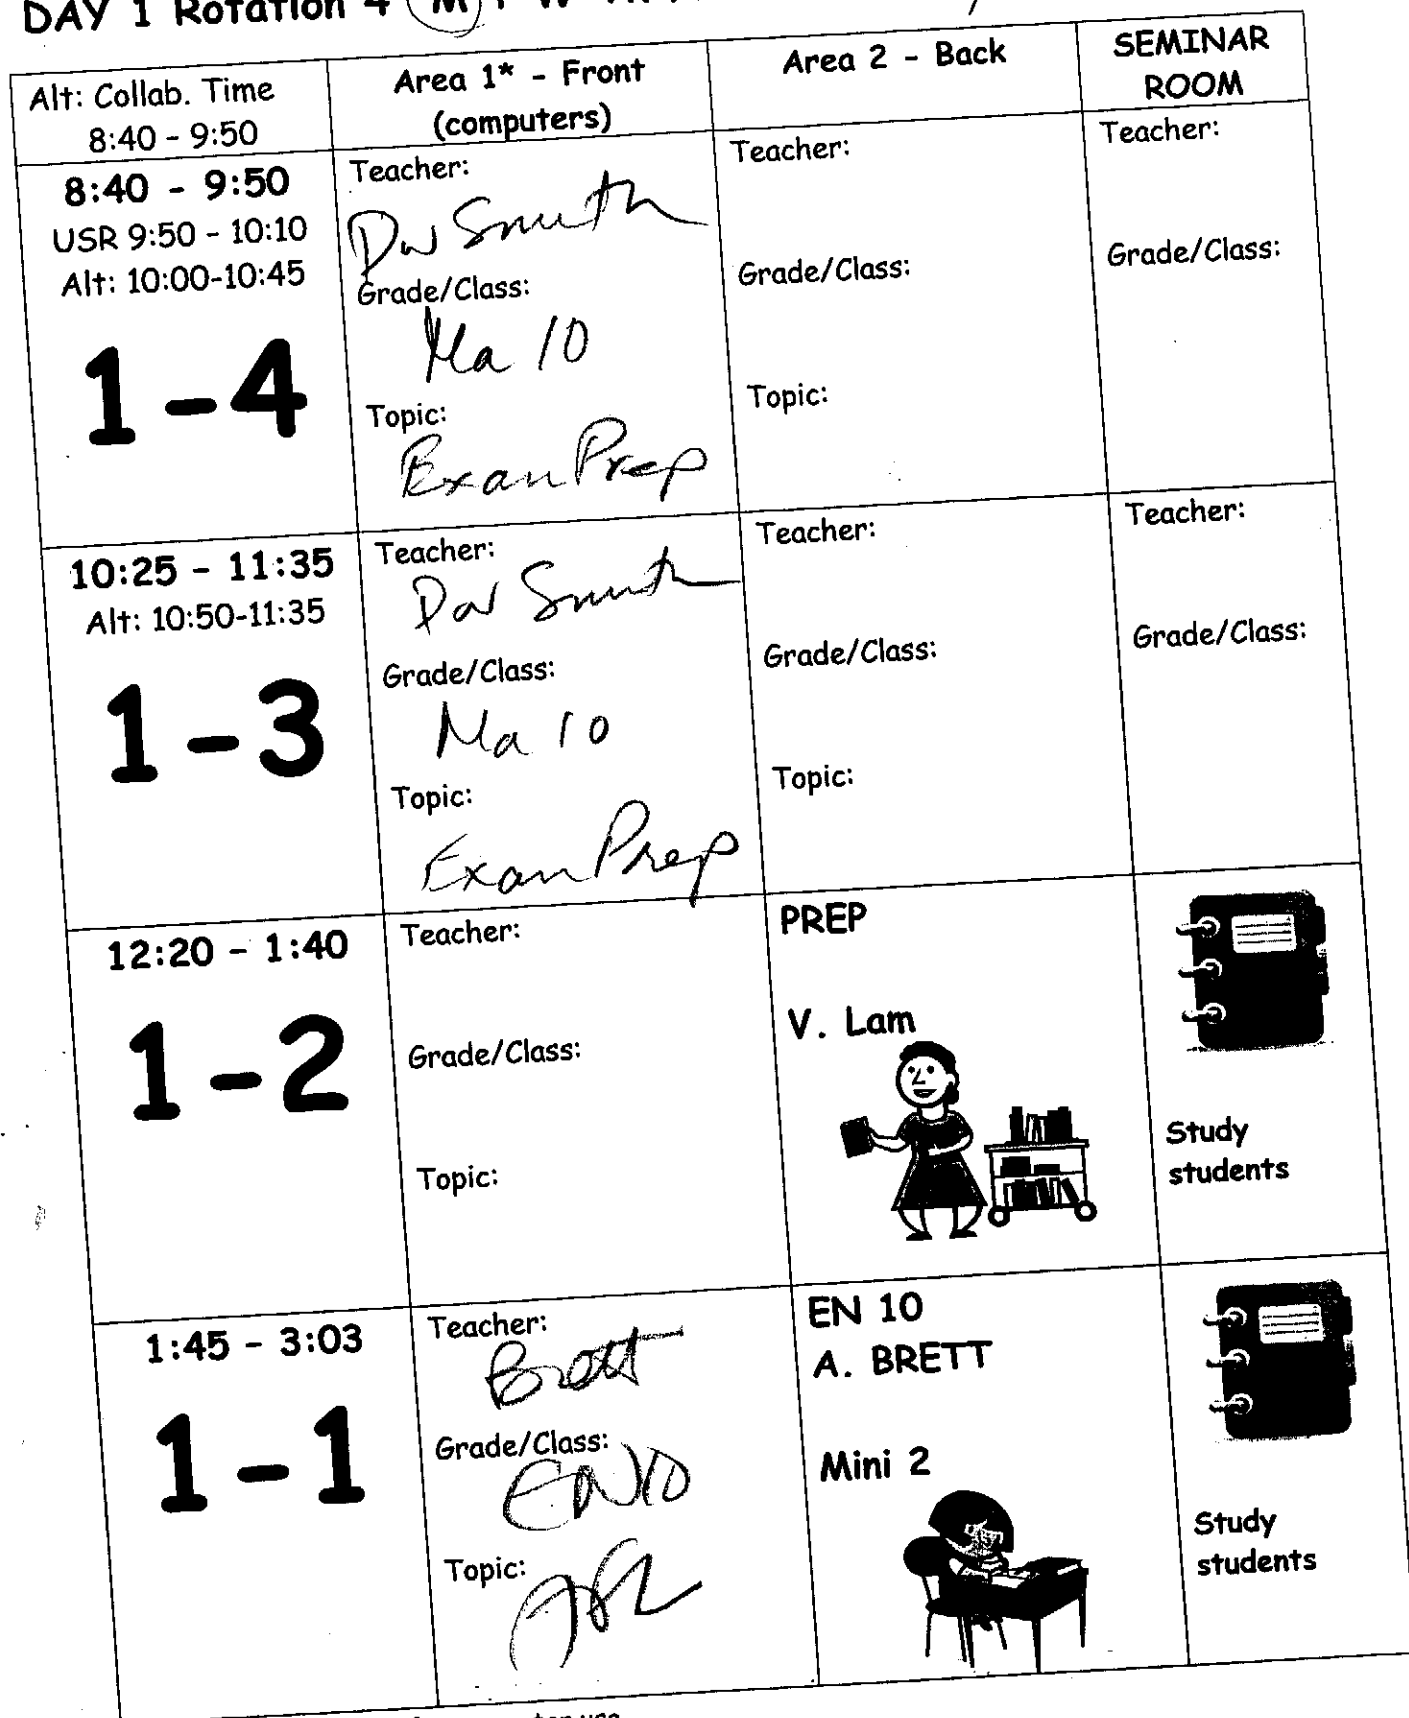 DAY 1 Rotation 4 M T W
Alt: Collab. Time
8:40 - 9:50
Area 1* - Front
(computers)
Area 2 - Back
SEMINAR
ROOM
8:40 - 9:50
USR 9:50 - 10:10
Alt: 10:00-10:45
1-4
Teacher:
Smith
Grade/Class:
Ma 10
Topic:
Exam Prep
Teacher:
Grade/Class:
Topic:
Teacher:
Grade/Class:
10:25 - 11:35
Alt: 10:50-11:35
1-3
Teacher:
Smith
Grade/Class:
Ma 10
Topic:
Exam Prep
Teacher:
Grade/Class:
Topic:
Teacher:
Grade/Class:
12:20 - 1:40
1-2
Teacher:
Grade/Class:
Topic:
PREP
V. Lam
Study
students
1:45 - 3:03
1-1
Teacher:
Brett
Grade/Class:
EN10
Topic:
EN 10
A. BRETT
Mini 2
Study
students